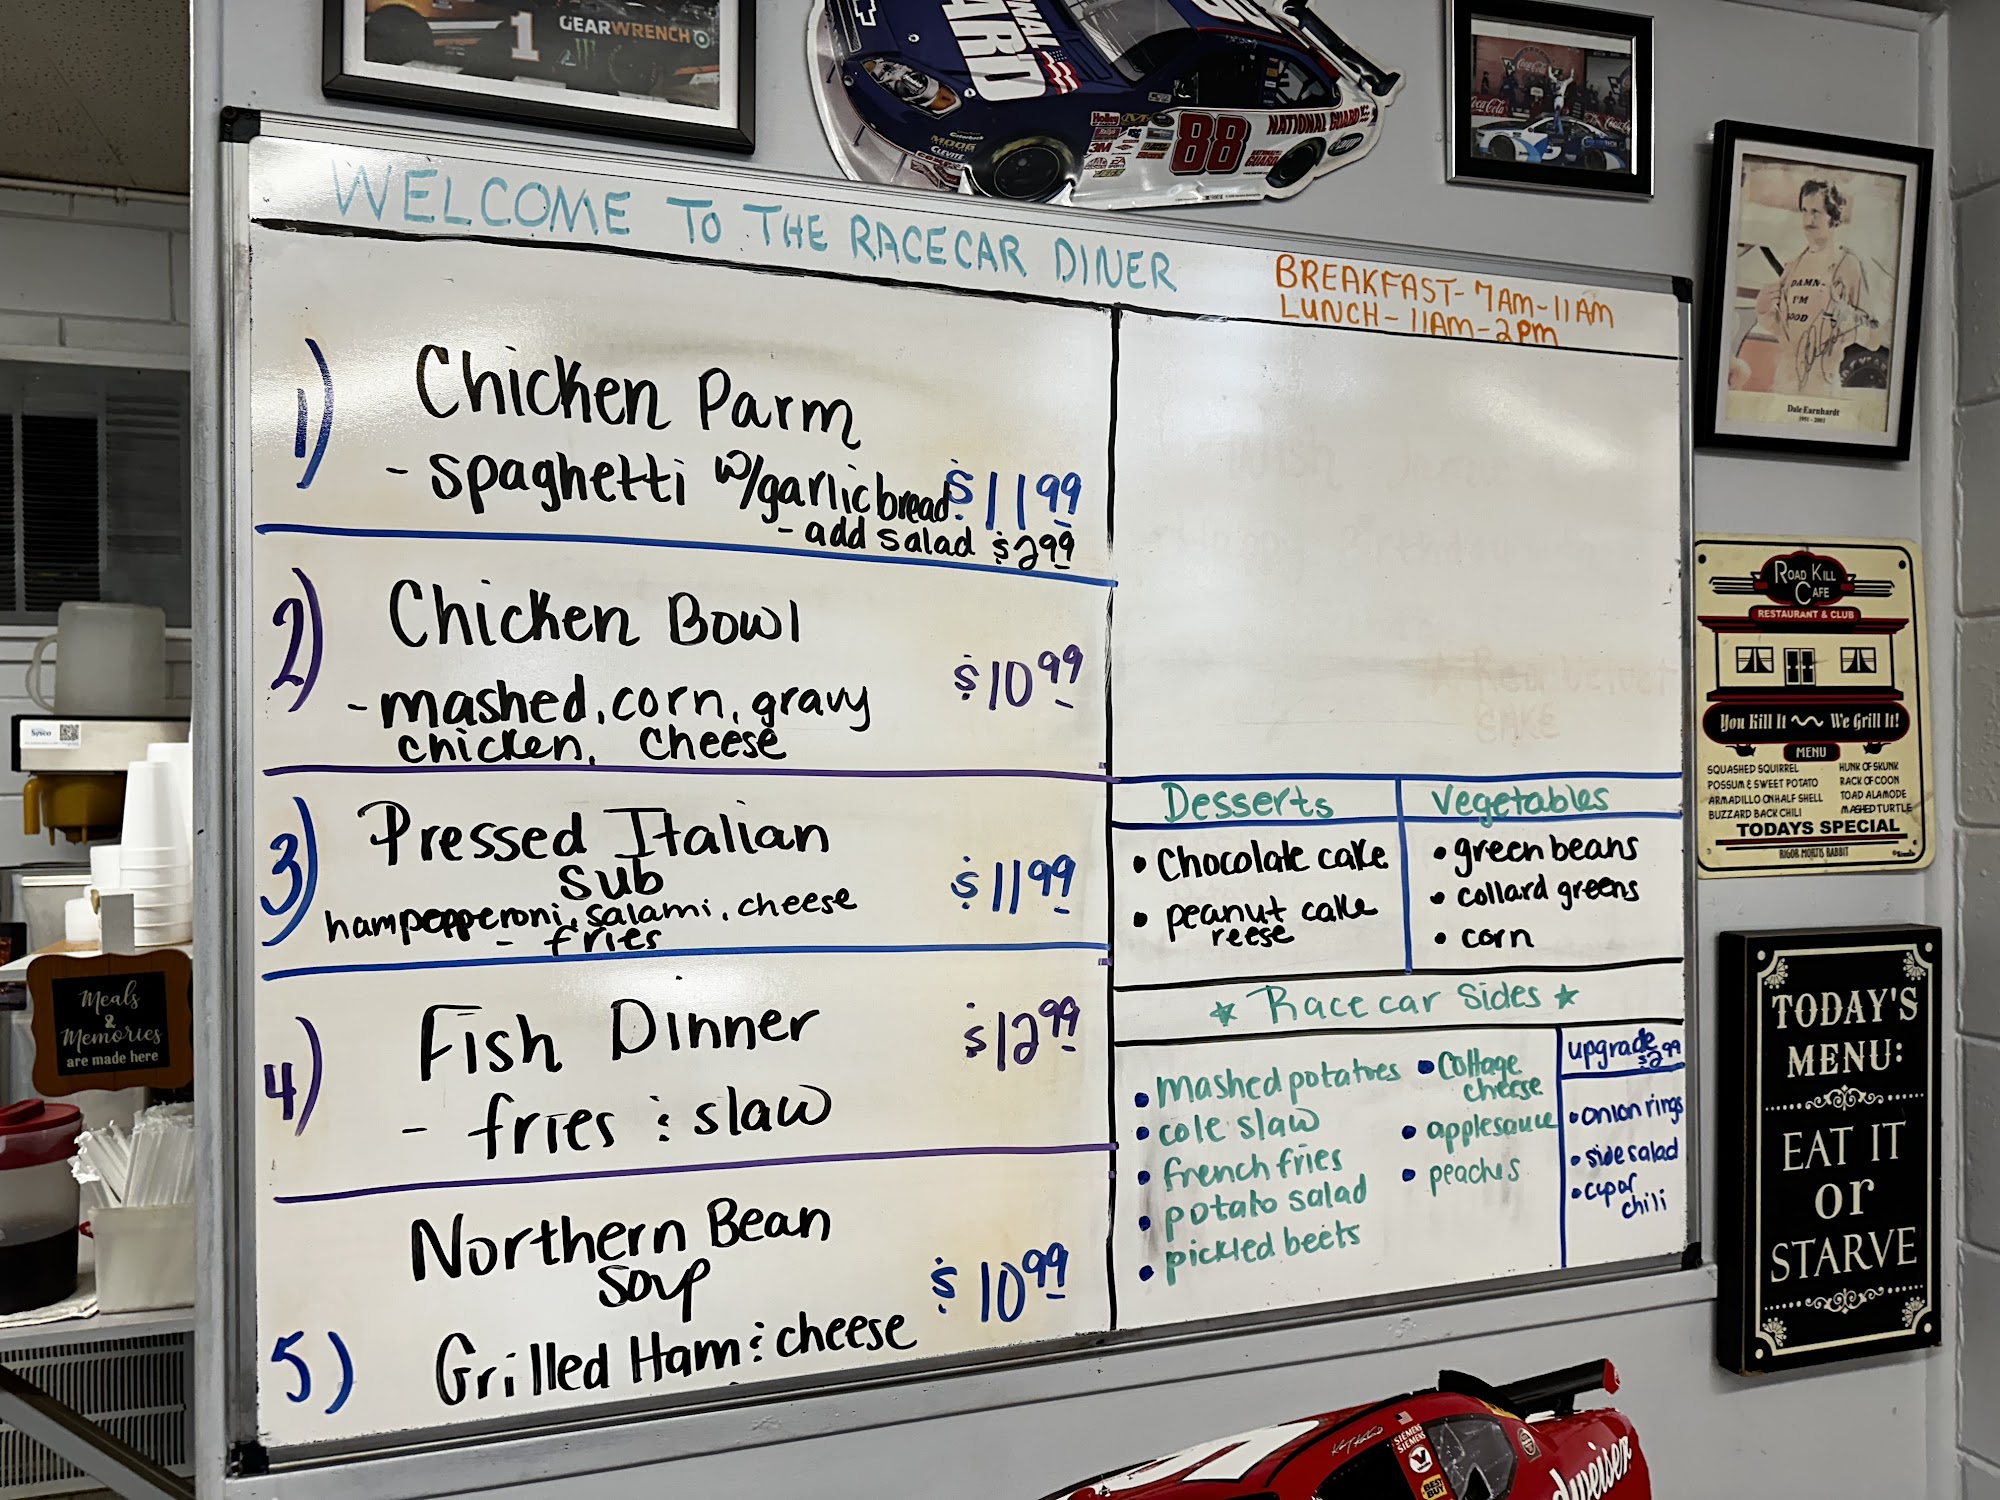 1
GEARWRENCH
NATIONAL GUARD
88
Holley
3M
MOOG
CLEVITE
Coca-Cola
Coca-Cola
WELCOME TO THE RACECAR DINER
BREAKFAST- 7AM-11AM
LUNCH- 11AM-2pm
1) Chicken Parm
- spaghetti w/garlic bread $11 99
- add salad $2 99
2) Chicken Bowl
- mashed, corn, gravy $10 99
chicken, cheese
3) Pressed Italian
sub $11 99
ham pepperoni, salami, cheese
- fries
4) Fish Dinner $12 99
- fries & slaw
Northern Bean
Soup $10 99
5) Grilled Ham & cheese
Desserts
• Chocolate cake
• peanut cake
reese
Vegetables
• green beans
• collard greens
• corn
Racecar Sides
• Mashed potatoes
• cole slaw
• french fries
• potato salad
• pickled beets
• Cottage
cheese
• applesauce
• peaches
upgrade
$2 99
• onion rings
• side salad
• cup of
chili
Red Velvet
CAKE
DAMN
I'M
GOOD
Dale Earnhardt
1951 - 2001
ROAD KILL
CAFE
RESTAURANT & CLUB
You Kill It We Grill It!
MENU
SQUASHED SQUIRREL
POSSUM & SWEET POTATO
ARMADILLO ON HALF SHELL
BUZZARD BACK CHILI
HUNK OF SKUNK
RACK OF COON
TOAD ALAMODE
MASHED TURTLE
TODAYS SPECIAL
RIGOR MORTIS RABBIT
TODAY'S
MENU:
EAT IT
or
STARVE
Sysco
Meals
&
Memories
are made here
SIEMENS
SIEMENS
BEST
BUY
dweiser